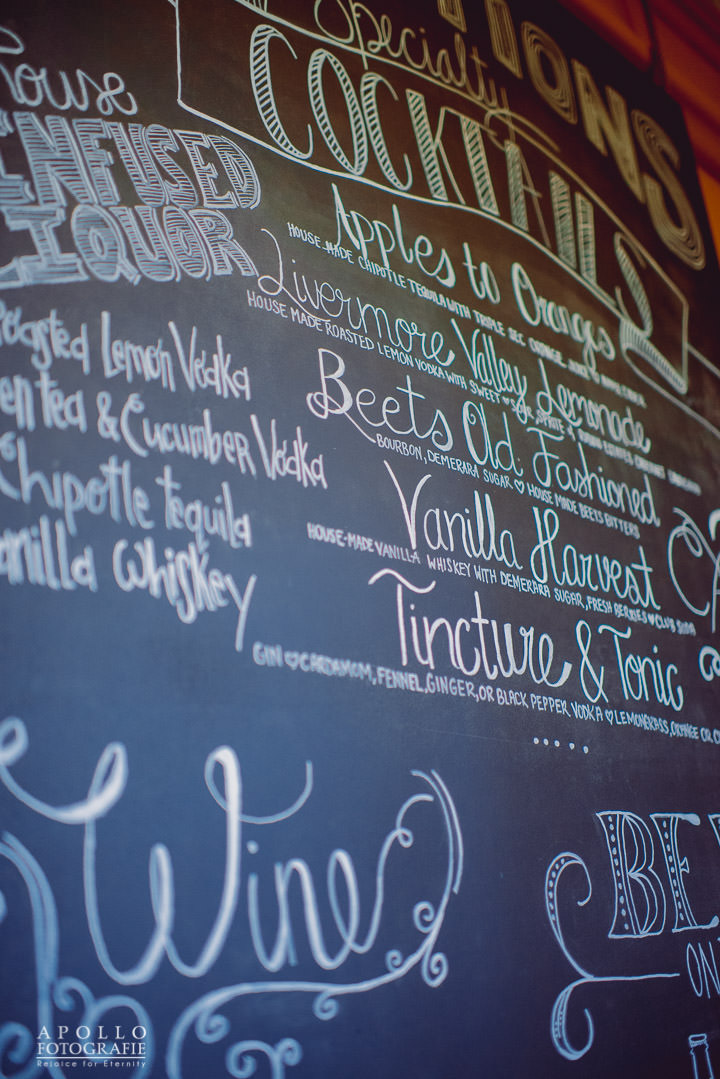 TIONS
Specialty
COCKTAILS
House
INFUSED
LIQUOR
Roasted Lemon Vodka
en tea & Cucumber Vodka
Chipotle tequila
anilla Whiskey
Apples to Oranges
HOUSE MADE CHIPOTLE TEQUILA WITH TRIPLE SEC, ORANGE JUICE
Livermore Valley Lemonade
HOUSE MADE ROASTED LEMON VODKA WITH SWEET & SOUR, SPRITE
Beets Old Fashioned
BOURBON, DEMERARA SUGAR ♡ HOUSE MADE BEETS BITTERS
Vanilla Harvest
HOUSE-MADE VANILLA WHISKEY WITH DEMERARA SUGAR, FRESH BERRIES ♡ CLUB SODA
Tincture & Tonic
GIN ♡ CARDAMOM, FENNEL, GINGER, OR BLACK PEPPER VODKA ♡ LEMONGRASS, ORANGE OR
Wine
BE
ON
APOLLO
FOTOGRAFIE
Rejoice for Eternity